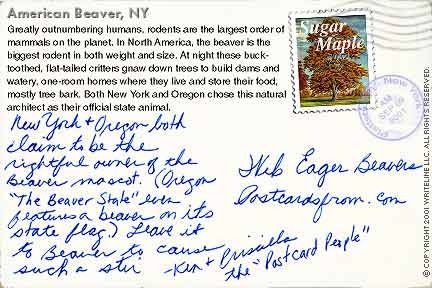 American Beaver, NY
Greatly outnumbering humans, rodents are the largest order of
mammals on the planet. In North America, the beaver is the
biggest rodent in both weight and size. At night these buck-
toothed, flat-tailed critters gnaw down trees to build dams and
watery, one-room homes where they live and store their food,
mostly tree bark. Both New York and Oregon chose this natural
architect as their official state animal.
New York + Oregon both
claim to be the
rightful owner of the
Beaver mascot. (Oregon
"The Beaver State" even
features a beaver on its
state flag.) Leave it
to Beaver to cause
such a stir
-Ken + Priscilla
the "Postcard People"
Sugar
Maple
New York
AM
2001
Web Eager Beavers
Postcardsfrom.com
© COPYRIGHT 2001 WRITELINE LLC. ALL RIGHTS RESERVED.